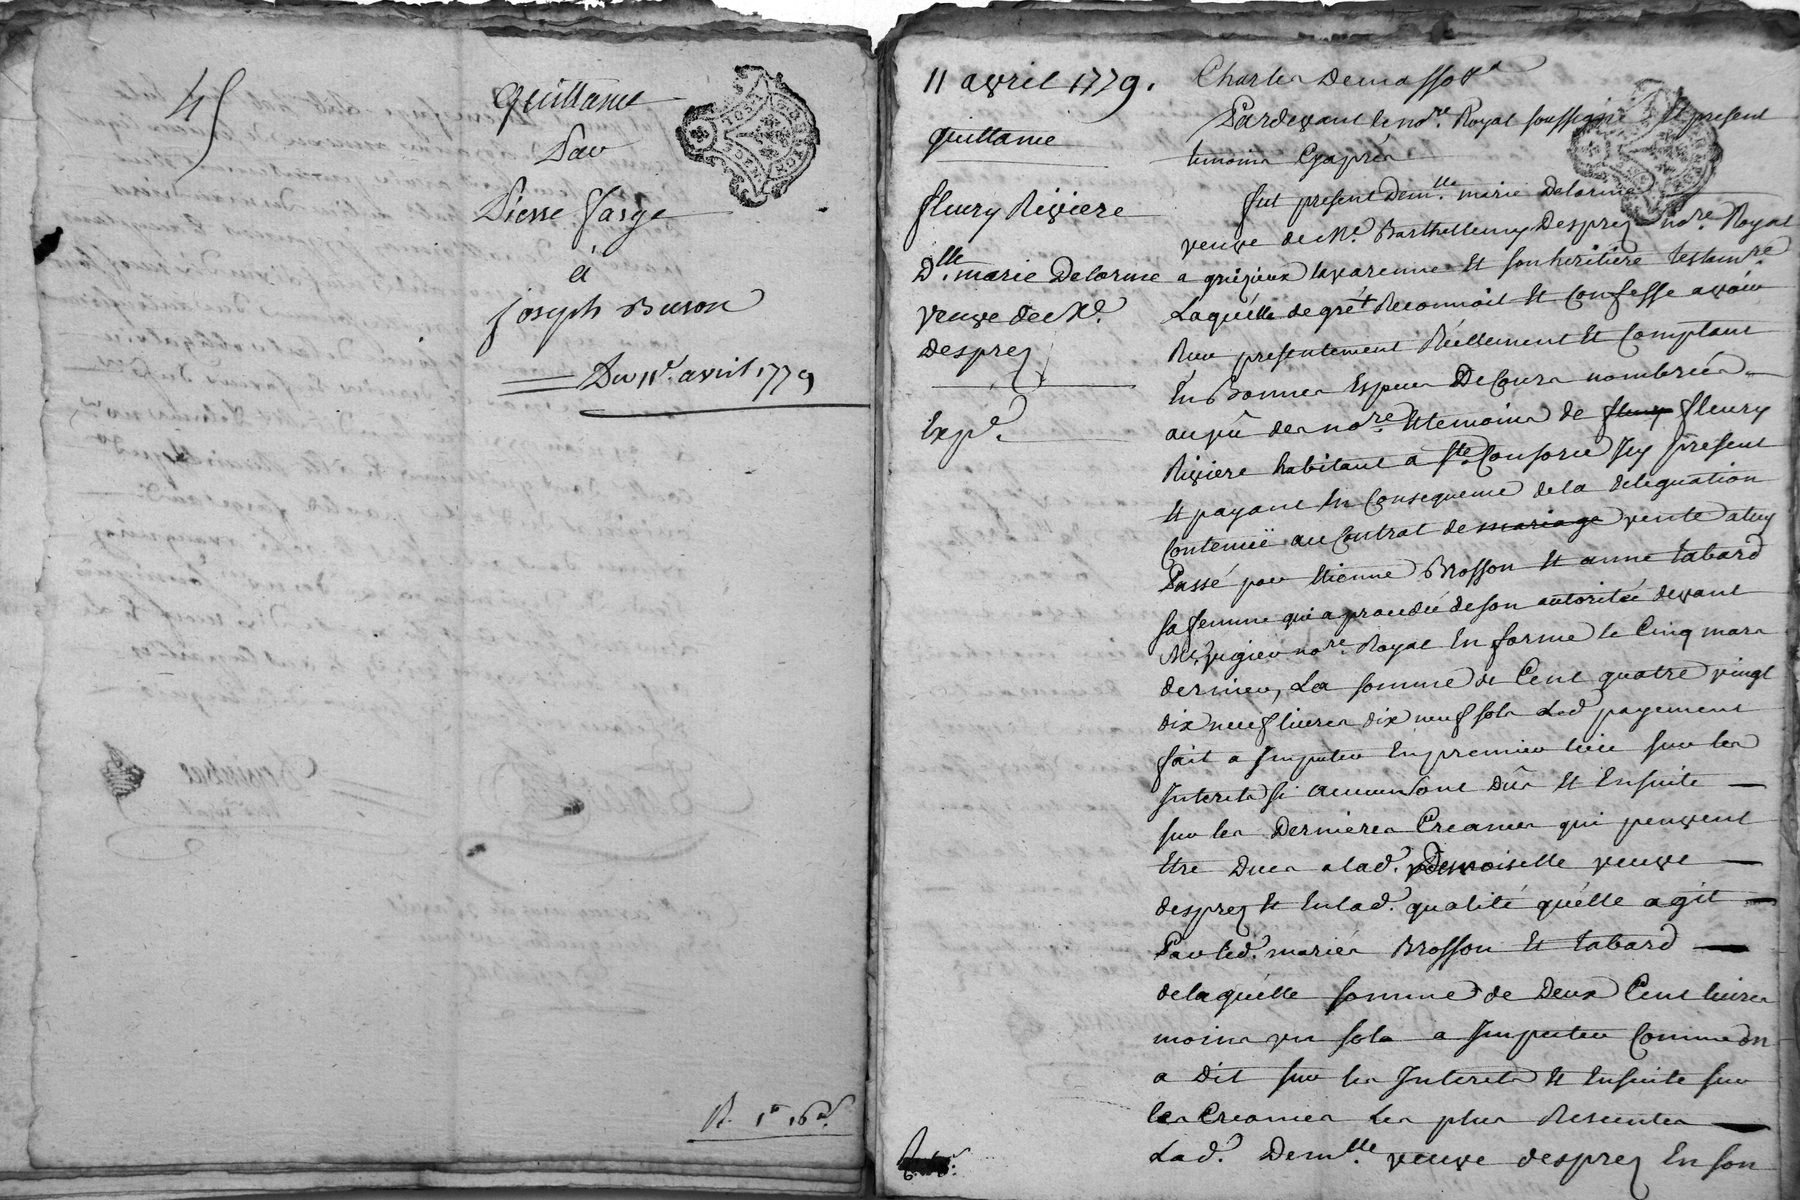 45
Quittance
Par
Pierre farge
à
joseph Buron
Du 11e. avril 1779
R. 1# 16s.
11 avril 1779.
quittance
fleury Riviere
Dlle. marie Delorme
veuve de Me.
desprez
Expé.
Charles Demassott
Pardevant le nore. Royal soussigné Et present
temoins Cyaprès
fut presente Demlle. marie Delorme
veuve de Me. Barthellemy Desprez nore. Royal
a grézieux lavarenne Et son heritière testamre
Laquélle de gré Reconnoit Et Confesse avoir
Recu presentement Réellement Et Comptant
En Bonnes Especes De Cours nombrées
au vû des nore. Et temoins de fleury fleury
Riviere habitant a Ste. Consorce Icy present
Et payant En Consequence de la deleguation
Contenüe au Contrat de mariage vente a luy
Passé par Etienne Brosson Et anne tabard
sa femme qui a procedée de son autoritée devant
Me. nore. Royal En forme le Cinq mars
dernier, La somme de Cent quatre vingt
dix neuf livres dix neuf sols Led. payement
fait a Imputer En premier lieu sur les
Interets si aucun sont Dûs Et Ensuite
sur les Dernieres Creances qui peuvent
Etre Dues a lad. Demoiselle veuve
desprez Et En lad. qualité qu'élle agit
Par led. mariés Brosson Et tabard
de laquélle somme de Deux Cent livres
moins un sols a Imputer Comme on
a Dit sur les Interets Et Ensuite sur
les Creances Les plus Resentes
Lad. Demlle. veuve desprez En son